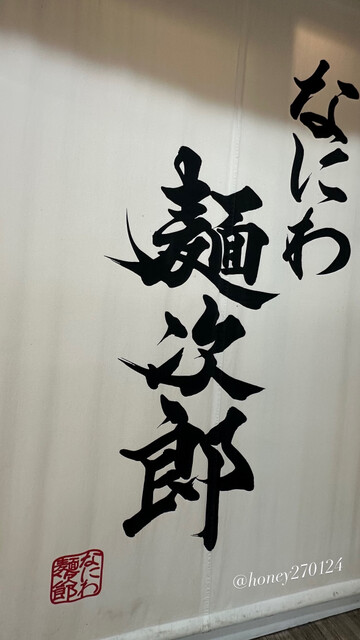 なにわ
麺次郎
なにわ
麺次郎
@honey270124